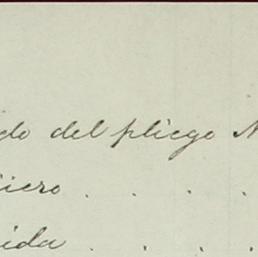 do del pliego N
iero . . . .
ida . . . .